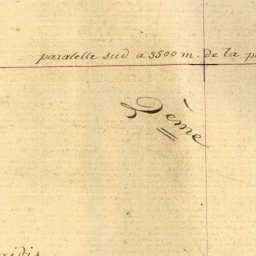 paralelle sud a 3500 m. de la p
2ème